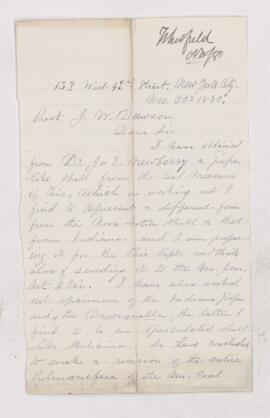 Whitfield
Nov/80
133 West 42nd Street, New York City.
Nov. 20th 1880.
J. W. Dawson
Dear Sir
I have obtained
from Dr. J. S. Newberry a Pupa
like shell from the Coal Measures
of Ohio, which on working out I
find to represent a different form
from the Nova Scotia shell or that
from Indiana and I am prepar-
ing it for the Ohio Rept. with
also of sending it to the Am. Jour.
Art & Sci. I have also worked
out specimens of the Indiana Pupa
and of the Dawsonella, the latter I
find to be an operculated shell
like Helicina. So have concluded
to make a revision of the entire
Pulmonifera of the Am. Coal.